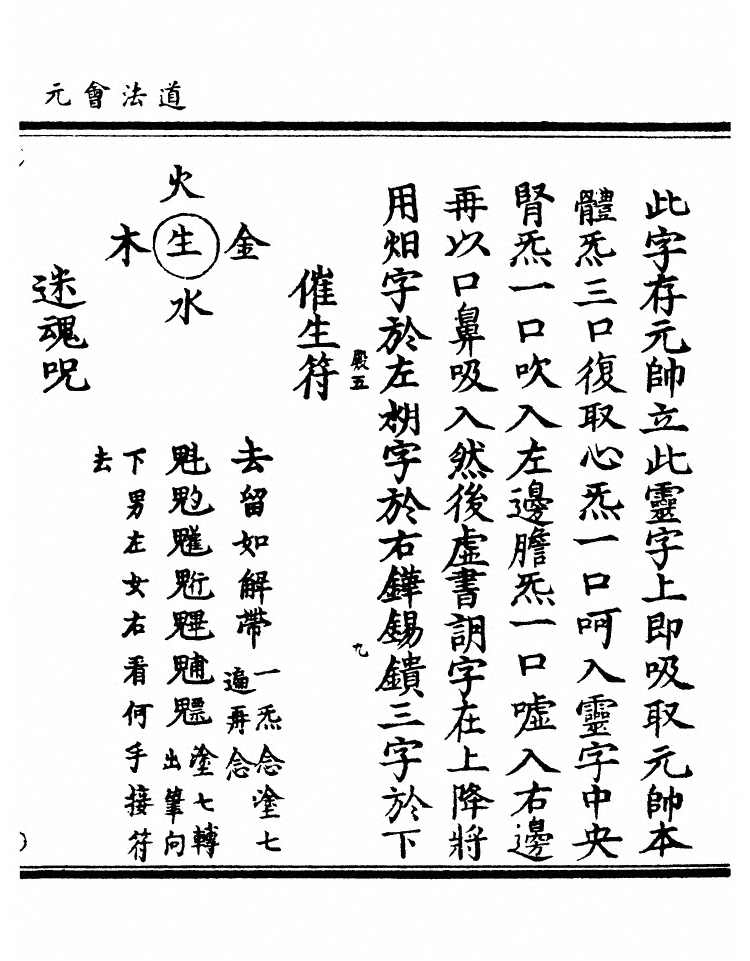 道法會元
此字存元帥立此靈字上即吸取元帥本
體炁三口復取心炁一口呵入靈字中央
腎炁一口吹入左邊膽炁一口噓入右邊
再以口鼻吸入然後虛書字在上降將
用字於左字於右鏵錫鐀三字於下
殿五
九
催生符
火
木生金
水
去留如解帶一炁念塗七
遍再念
魁𩲃䰰䰢魓𩳐魒塗七轉
出筆向
下男左女右看何手接符
去
迷魂呪